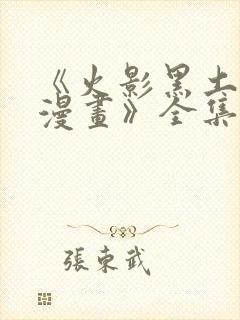 《火影黑土
漫畫》全集
張東武